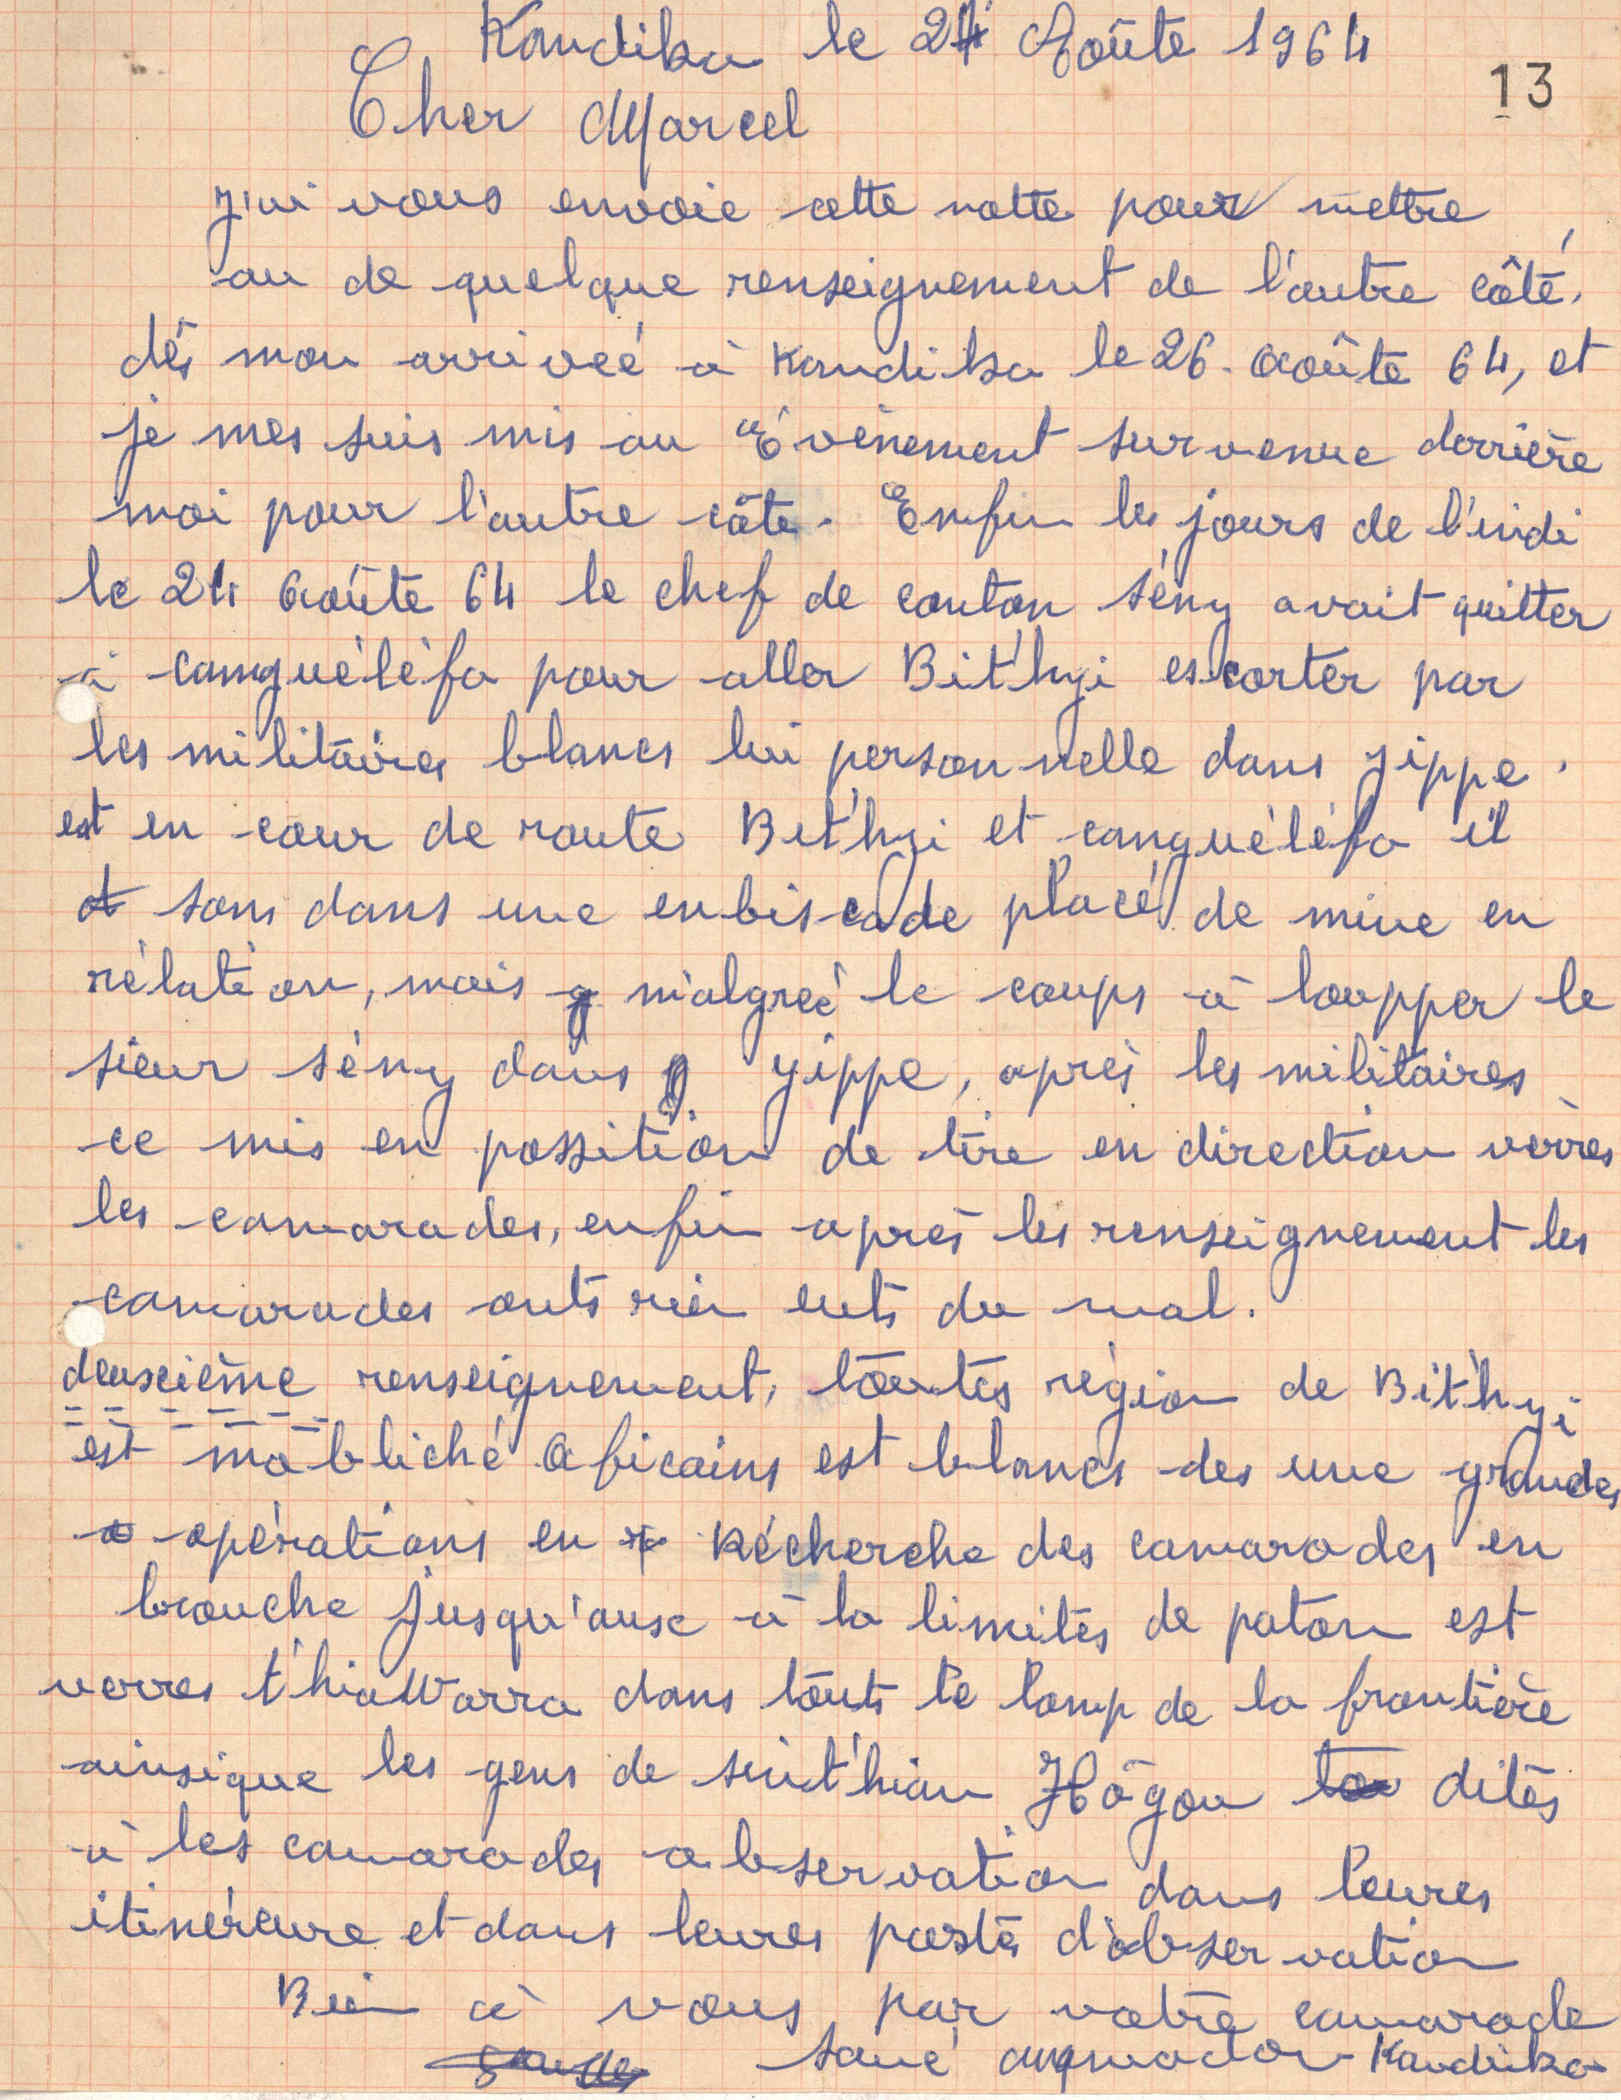 Kandika le 24 Aoûte 1964
13
Cher Marcel
J'ai vous envoie cette notte pour mettre
au de quelque renseignement de l'autre côté.
dés mon arriveé à Kandika le 26. aoûte 64, et
je mes suis mis au Évènement survenue derrière
moi pour l'autre côte. Enfin les jours de l'indi
le 24 aoûte 64 le chef de conton sény avait quitter
à canguéléfa pour aller Bit'hyi escorter par
les militaires blancs lui personnelle dans jippe.
est en cour de route Bit'hyi et canguéléfa il
sons dans une enbiscade placé de mine en
rélation, mais malgreé le coups à loupper le
sieur sény dans yippe, aprés les militaires
ce mis en possition de tire en direction verres
les camarades, enfin aprés les renseignement les
camarades onts rien euts du mal.
deuxième renseignement, toutes région de Bit'hyi
est mobliché Aficains est blancs des une grandes
opérations en Récherche des camarades en
brouche jusqu'aux à la limites de paton est
verres t'hiaWarra dans touts le lomp de la frontière
ainsique les gens de sint'hian Hôgou dites
à les camarades observation dans leures
itinéreure et dans leures postes d'observation
Bien à vous par votre camarade
sané Kandika